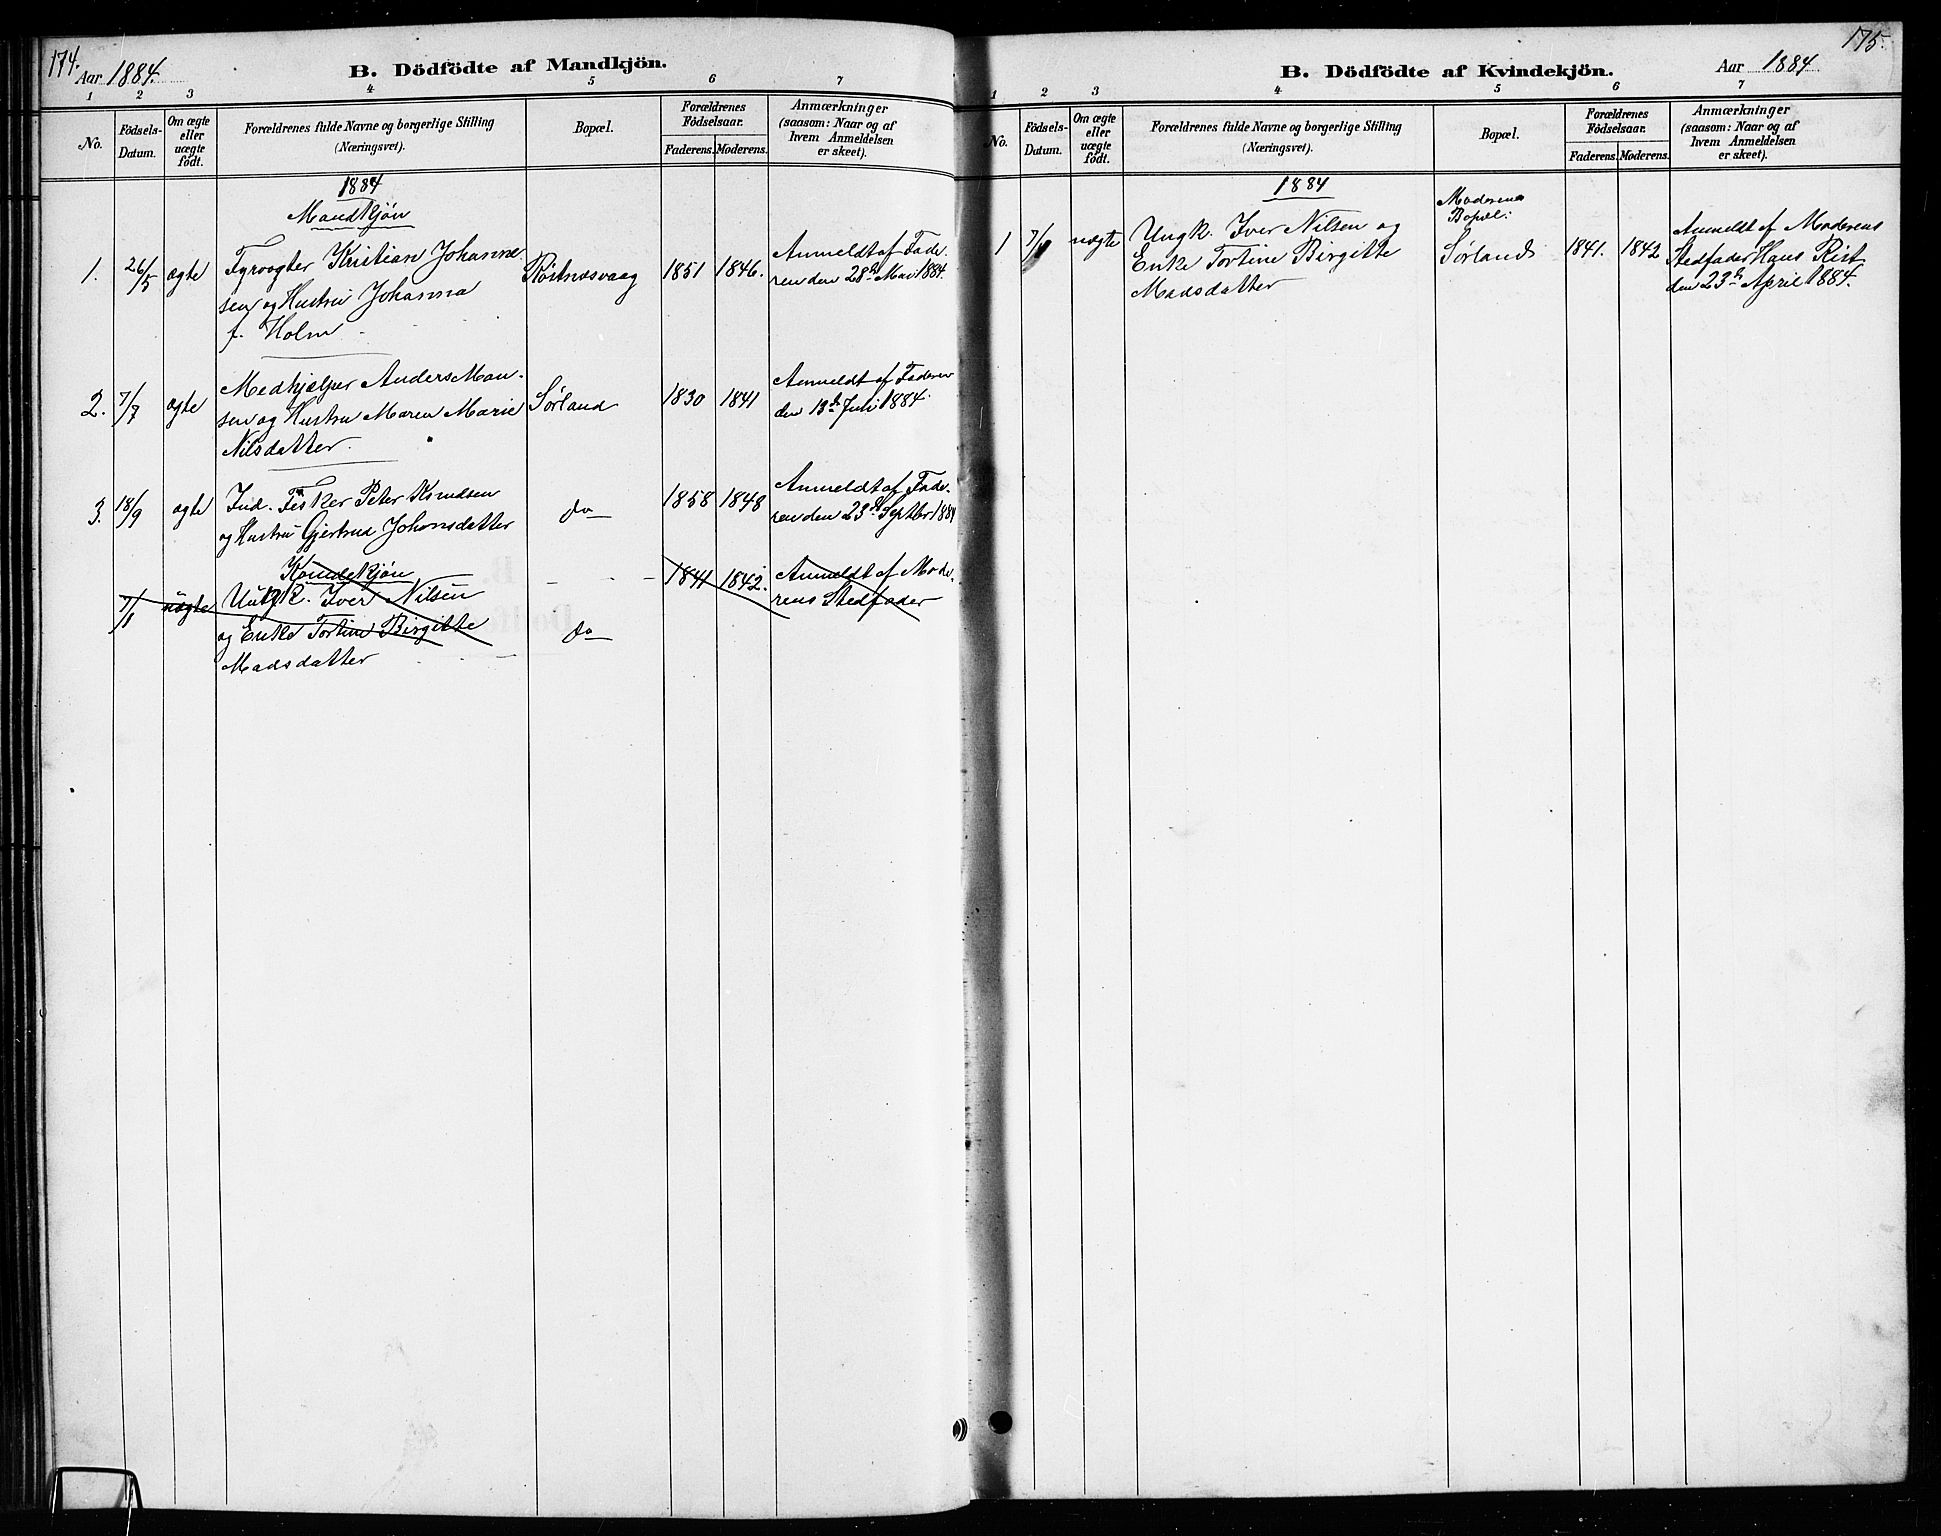 174.
Aar 1884.
B. Dödfödte af Mandkjön.
1 2 3 4 5 6 7
No.
Födsels-
Datum.
Om ægte
eller
uægte
födt.
Forældrenes fulde Navne og borgerlige Stilling
(Næringsvei).
Bopæl.
Forældrenes
Födselsaar.
Faderens. Moderens.
Anmærkninger
(saasom: Naar og af
hvem Anmeldelsen
er skeet).
1884
Mandkjøn
1. 26/5 ægte
Fyrvogter Kristian Johanne-
sen og Hustru Johanna
f. Holm
Røstnesvaag
1851 1846.
Anmeldt af Fade-
ren den 28de Mai 1884.
2. 7/7 ægte
Medhjælper Anders Man-
sen og Hustru Maren Marie
Nilsdatter.
Sørland
1830 1841
Anmeldt af Faderen
den 13de Juli 1884.
3. 18/9 ægte
Ind. Fisker Peter Knudsen
og Hustru Gjertrud Johansdatter
do
1858 1848
Anmeldt af Fade-
ren den 23de Septbr 1884
Kvindekjøn
7/1 uægte
Ungk. Iver Nilsen
og Enke Tortine Birgitte
Madsdatter
do
1841 1842.
Anmeldt af Mode-
rens Stedfader
175.
B. Dödfödte af Kvindekjön.
Aar 1884
1 2 3 4 5 6 7
No.
Födsels-
Datum.
Om ægte
eller
uægte
födt.
Forældrenes fulde Navne og borgerlige Stilling
(Næringsvei).
Bopæl.
Forældrenes
Födselsaar.
Faderens. Moderens.
Anmærkninger
(saasom: Naar og af
hvem Anmeldelsen
er skeet).
1884
1 7/1 uægte
Ungk. Iver Nilsen og
Enke Tortine Birgitte
Madsdatter
Moderens
Bopæl:
Sørland
1841. 1842
Anmeldt af Moderens
Stedfader Hans Rist
den 23de April 1884.